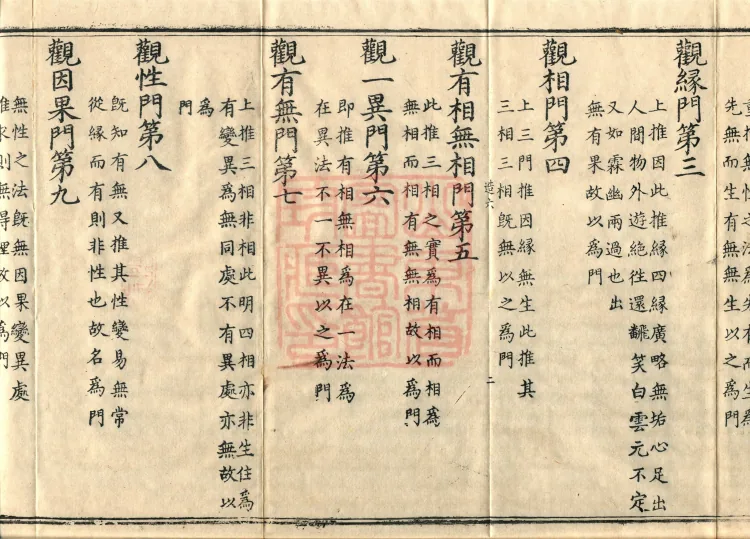 先無而生有無無生以之爲門
觀緣門第三
上推因此推緣四緣廣略無垢心足出
人間物外遊絶徃還飜笑白雲元不定
又如霖幽兩過也出
無有果故以爲門
觀相門第四
上三門推因緣無生此推其
三相三相旣無以之爲門
造六
二
觀有相無相門第五
此推三相之實爲有相而相爲
無相而相相有無無相故以爲門
觀一異門第六
即推有相無相爲在一法爲
在異法不一不異以之爲門
觀有無門第七
上推三相非相此明四相亦非生住爲
有變異爲無同處不有異處亦無故以
爲
門
觀性門第八
旣知有無又推其性變易無常
從緣而有則非性也故名爲門
觀因果門第九
無性之法旣無因果變異處
推求則無得理故以爲門